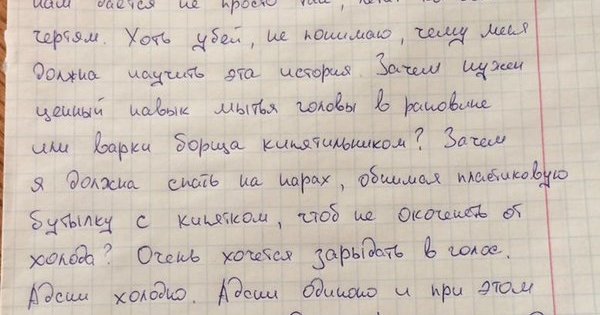 нам даётся не просто так,
чертям. Хоть убей, не понимаю, чему меня
должна научить эта история. Зачем нужен
ценный навык мытья головы в раковине
или варки борща кипятильником? Зачем
я должна спать на нарах, обнимая пластиковую
бутылку с кипятком, чтоб не окоченеть от
холода? Очень хочется зарыдать в голос.
Адски холодно. Адски одиноко и при этом